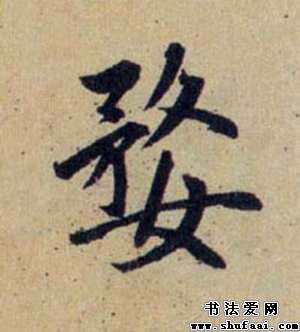 婺
书法爱网
www.shufaai.com